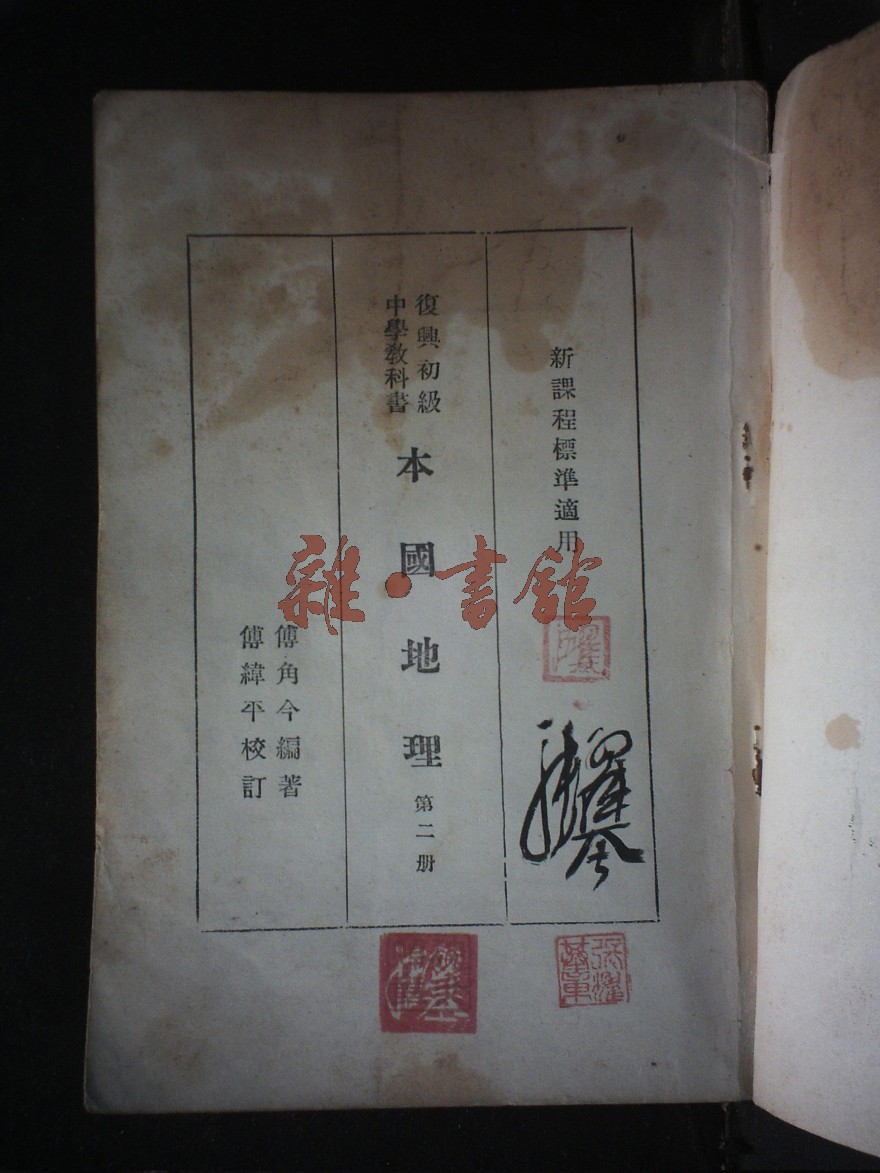 新課程標準適用
復興初級
中學教科書
本國地理 第二册
傅角今編著
傅緯平校訂
雜·書館